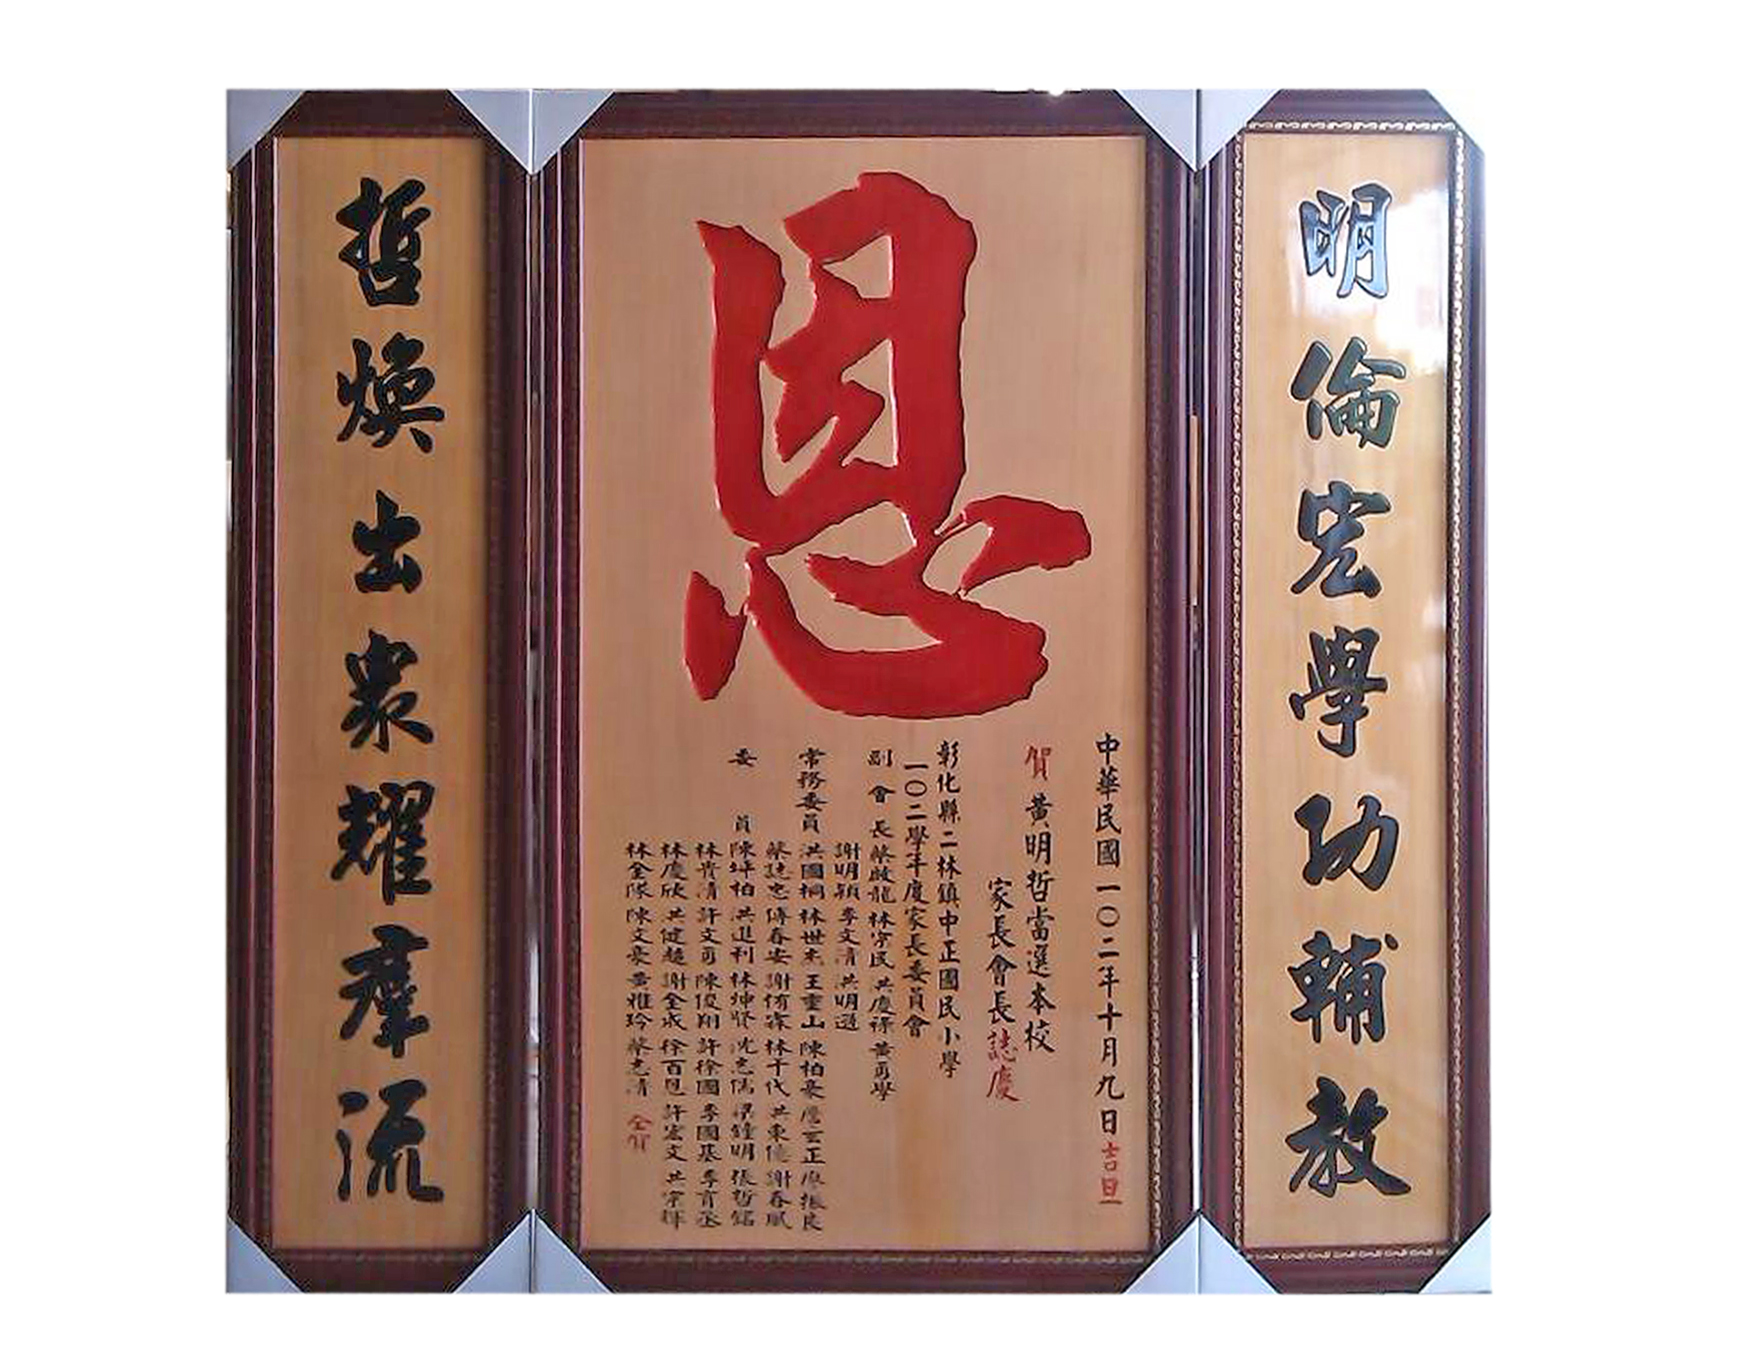 明倫宏學功輔教
恩
中華民國一〇二年十月九日吉旦
賀 黃明哲當選本校
家長會長誌慶
彰化縣二林鎮中正國民小學
一〇二學年度家長委員會
副會長 蔡啟龍 林宗民 洪慶祿 黃勇學
謝明穎 李文清 洪明遊
常務委員 洪國桐 林世杰 王重山 陳柏豪 詹云正 廖振良
蔡誌忠 傅春安 謝侑霖 林千代 洪東億 謝春賦
委員 陳坤柏 洪進利 林坤賢 沈忠儒 梁鐘明 張哲銘
林貴清 許文勇 陳俊翔 許徐國 李國基 李育丞
林慶欣 洪健超 謝金成 徐百恩 許宏文 洪宗輝
林金隊 陳文豪 黃雅玲 蔡志清 仝賀
哲煥出眾耀羣流